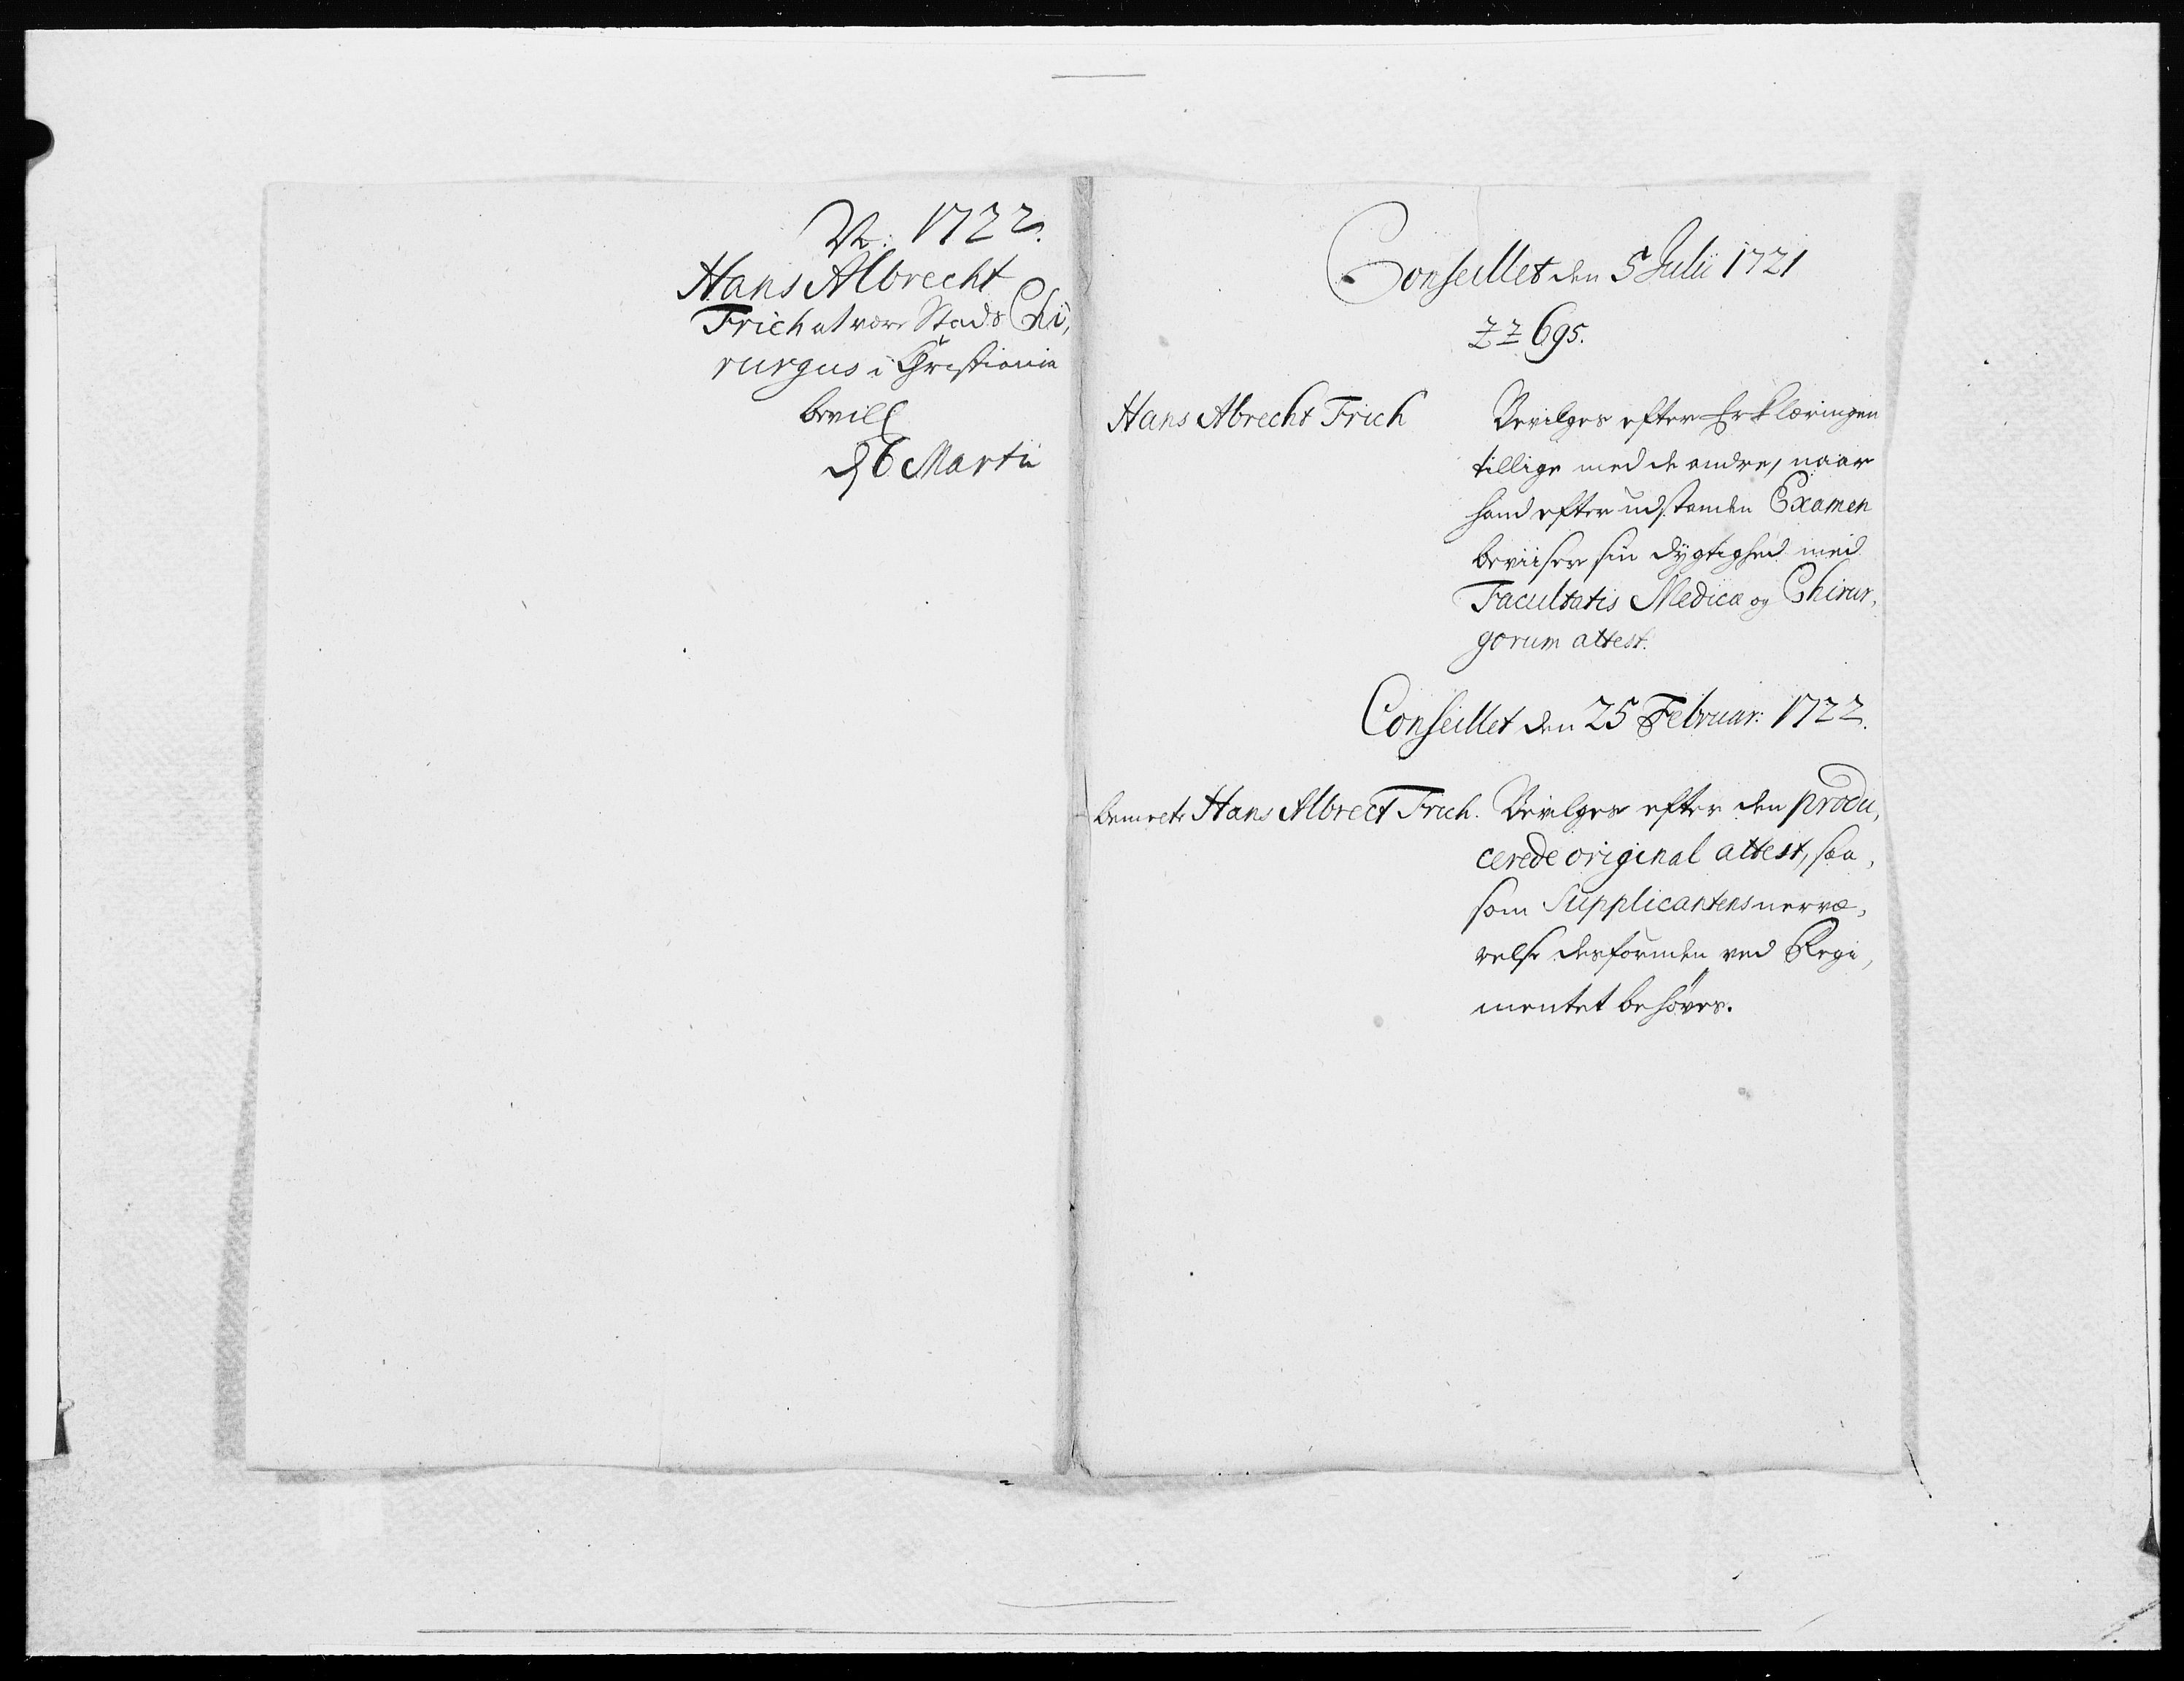 1722.
Hans Albrecht
Frich at være Stads Chi,
rurgus i Christiania
bevill
6 Martii
Conseillet den 5 Julii 1721
ZZ 695.
Hans Abrecht Frich
Bevilges efter Erklæringen
tillige med de andre, naar
hand efter udstanden Examen
beviiser sin dygtighed med
Facultatis Medicæ og Chirur,
gorum attest.
Conseillet den 25 Februar: 1722.
bemelte Hans Albrect Frich.
Bevilges efter den produ,
cerede original attest, saa,
som Supplicantens nærvæ,
relse desforuden ved Regi,
mentet behøves.